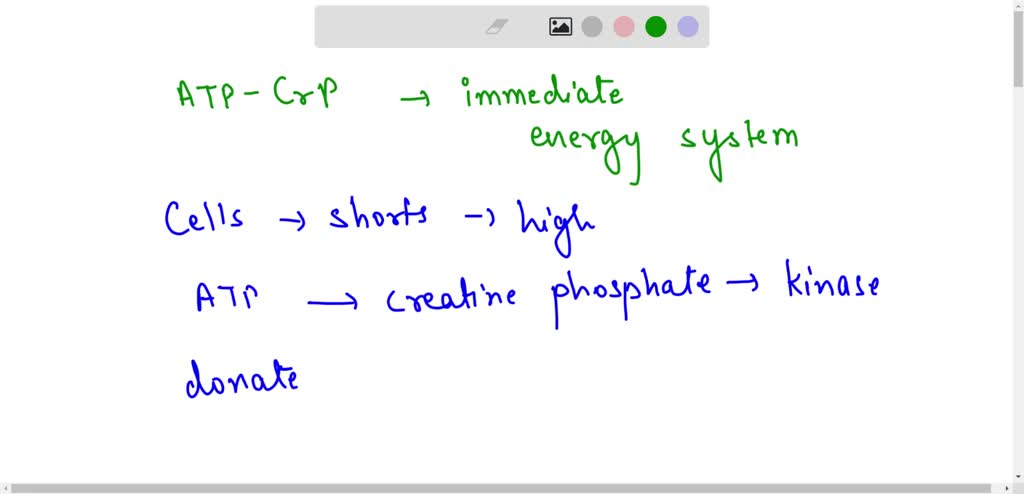 ATP - CrP → immediate
energy system
Cells → shorts → high
ATP → creatine phosphate → kinase
donate